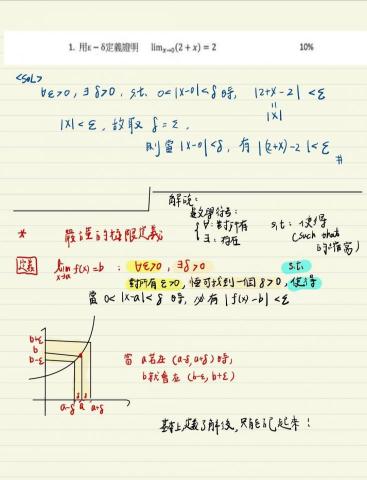 1. 用ε－δ定義證明 lim_{x→0}(2 + x) = 2 10%
<SOL>
∀ε>0, ∃δ>0, s.t. 0<|x-0|<δ 時, |2+x-2|<ε
=
|x|
|x|<ε, 故取 δ=ε,
則當 |x-0|<δ, 有 |(2+x)-2|<ε
#
解說:
數學符號:
∀: 對所有
∃: 存在
s.t: 使得
(such that
的縮寫)
* 嚴謹的極限定義
定義 lim_{x→a} f(x)=b : ∀ε>0, ∃δ>0 s.t.
對所有ε>0, 恆可找到一個δ>0, 使得
當 0<|x-a|<δ 時, 必有 |f(x)-b|<ε
b+ε
b
b-ε
a-δ a a+δ
當 a若在 (a-δ, a+δ) 時,
b就會在 (b-ε, b+ε)
基本上定義了解後, 只能記起來!